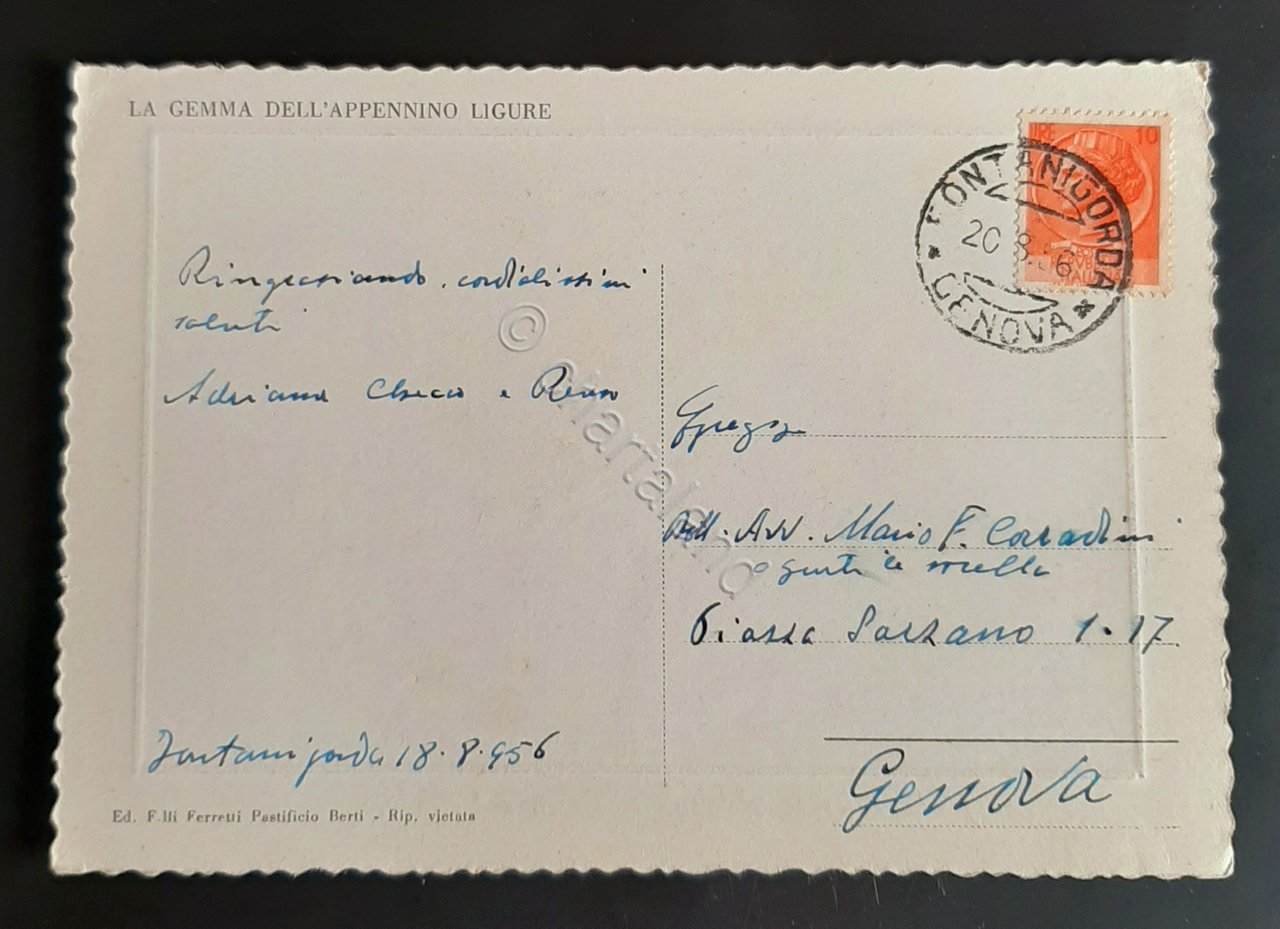 LA GEMMA DELL'APPENNINO LIGURE
LIRE 10
FONTANIGORDA
20.8.56
GENOVA
Ringraziando, cordialissimi
saluti
Adriana Checco e Renzo
© chartaland
Egregio
Dott. Avv. Mario F. Corradini
e gentile
Piazza Sarzano 1-17
Fontanigorda 18.8.956
Genova
Ed. F.lli Ferretti Pastificio Berti - Rip. vietata